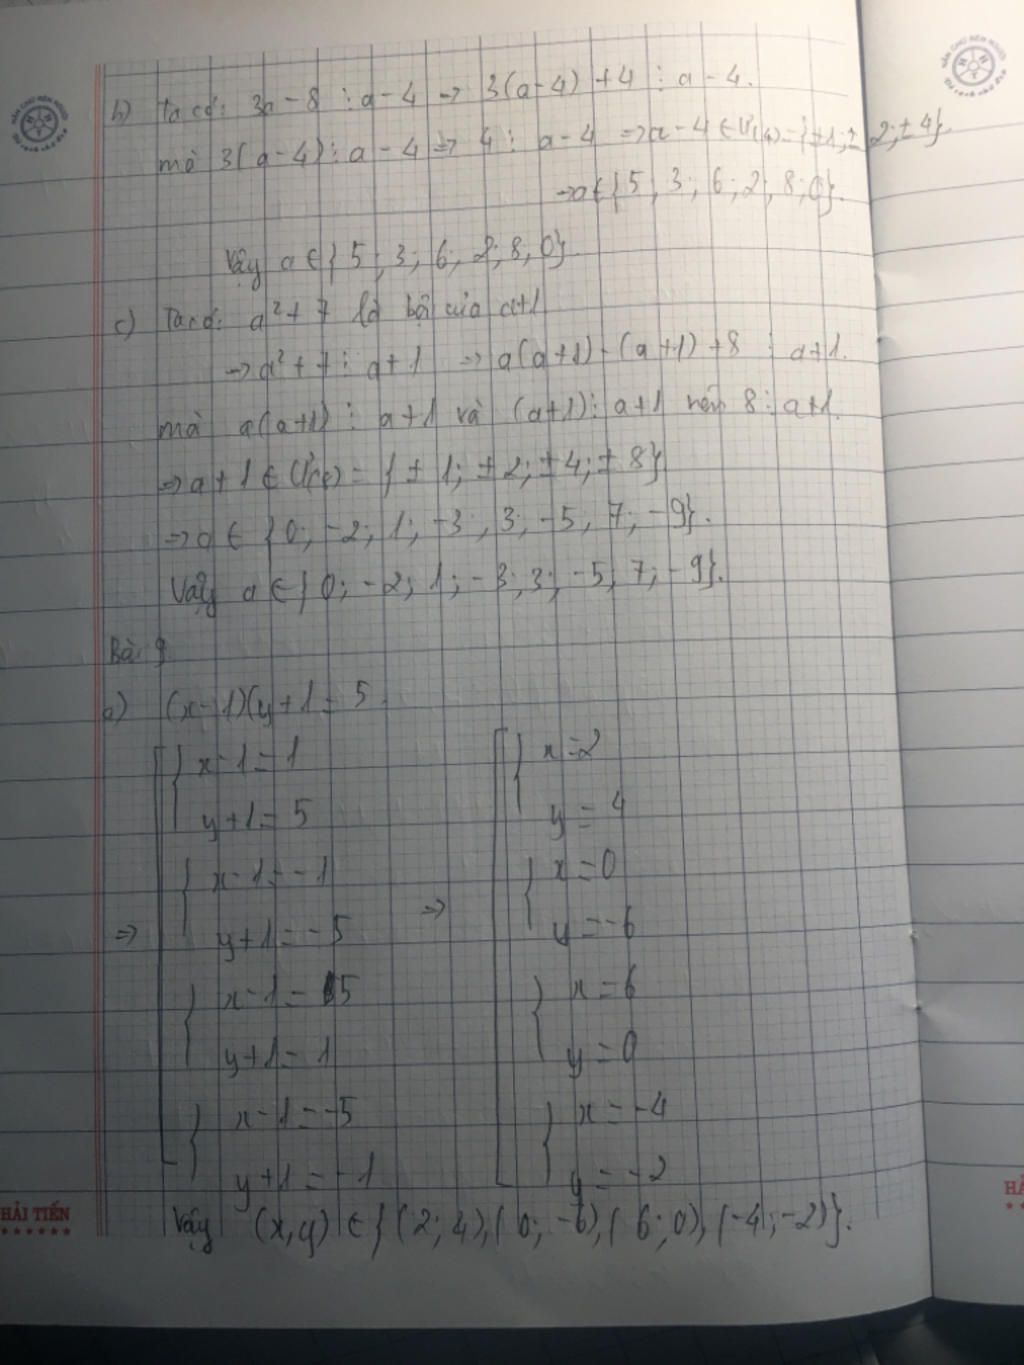 b) Ta có: 3a - 8 ⋮ a - 4 ⇒ 3(a-4) + 4 ⋮ a - 4.
mà 3(a-4) ⋮ a - 4 ⇒ 4 ⋮ a - 4 ⇒ a - 4 ∈ Ư(4) = {±1; ±2; ±4}.
⇒ a ∈ {5; 3; 6; 2; 8; 0}.
Vậy a ∈ {5; 3; 6; 2; 8; 0}
c) Ta có: a² + 7 là bội của a+1
⇒ a² + 7 ⋮ a + 1 ⇒ a(a+1) - (a+1) + 8 ⋮ a+1.
mà a(a+1) ⋮ a + 1 và (a+1) ⋮ a+1 nên 8 ⋮ a+1.
⇒ a + 1 ∈ Ư(8) = {±1; ±2; ±4; ±8}
⇒ a ∈ {0; -2; 1; -3; 3; -5; 7; -9}.
Vậy a ∈ {0; -2; 1; -3; 3; -5; 7; -9}.
Bài 9
a) (x-1)(y+1 = 5.
x - 1 = 1 x = 2
y + 1 = 5 y = 4
x - 1 = -1 x = 0
⇒ y + 1 = -5 ⇒ y = -6
x - 1 = 5 x = 6
y + 1 = 1 y = 0
x - 1 = -5 x = -4
y + 1 = -1 y = -2
Vậy (x,y) ∈ {(2; 4), (0; -6), (6; 0), (-4; -2)}.
HẢI TIẾN